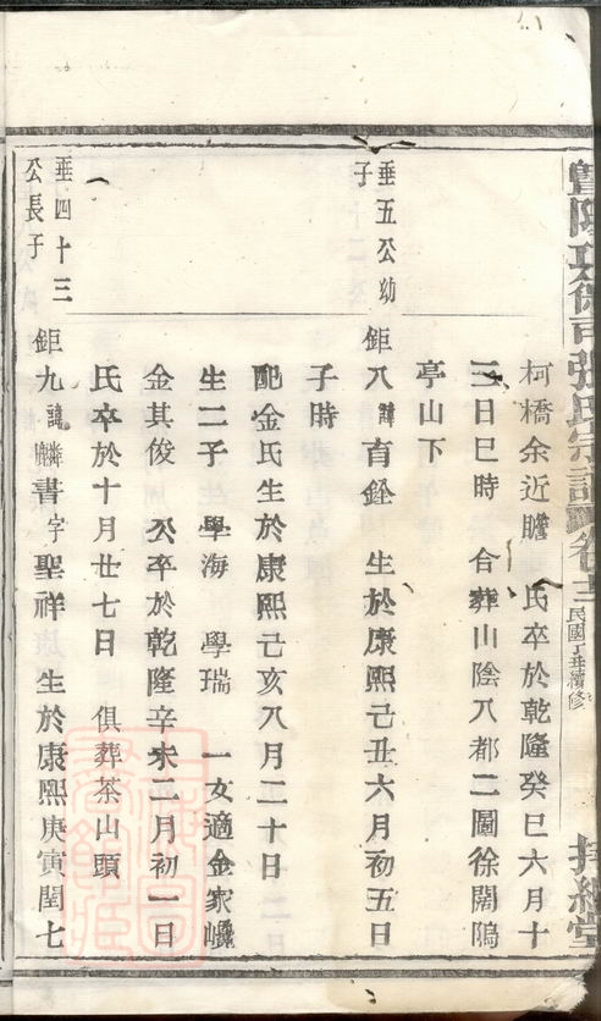 暨陽孝義張氏宗譜 卷十二 民國丁丑續修
柯橋余近瞻 氏卒於乾隆癸巳六月十
三日巳時 合葬山陰八都二圖徐闊鴿
亭山下
垂五公幼
子
鉅八 諱育銓 生於康熙己丑六月初五日
子時
配金氏生於康熙己亥八月二十日
生二子 學海 學瑞 一女適金家
金其俊 公卒於乾隆辛未二月初一日
氏卒於十月廿七日 俱葬茶山頭
垂四十三
公長子
鉅九 諱麟書 字聖祥 生於康熙庚寅閏七